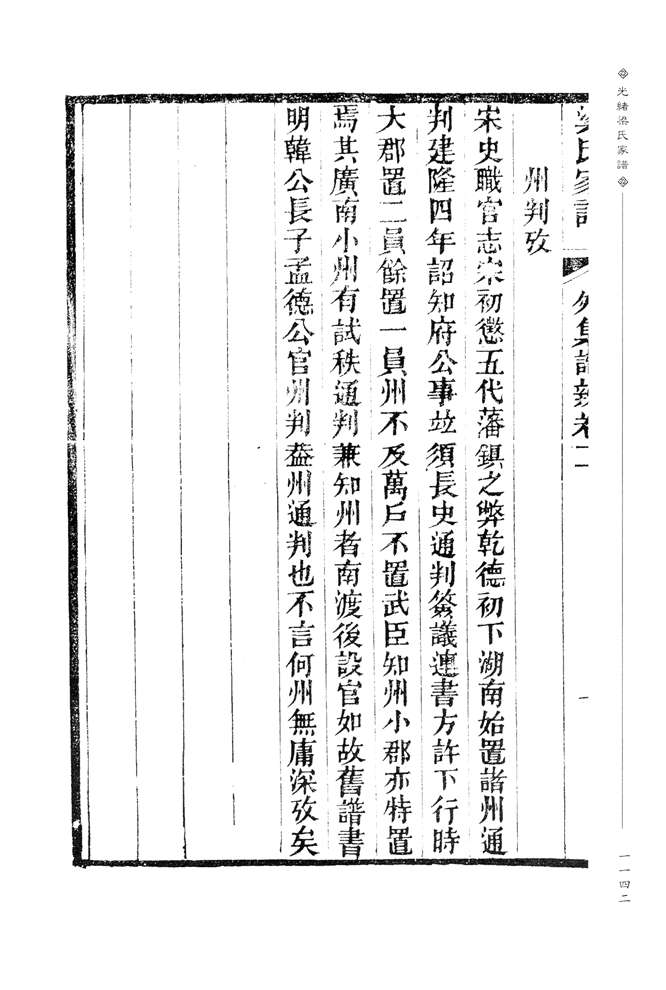 光緒梁氏家譜
一一四二
梁氏家譜 外集譜辨卷二 一
州判攷
宋史職官志宋初懲五代藩鎮之弊乾德初下湖南始置諸州通
判建隆四年詔知府公事竝須長史通判簽議連書方許下行時
大郡置二員餘置一員州不及萬戶不置武臣知州小郡亦特置
焉其廣南小州有試秩通判兼知州者南渡後設官如故舊譜書
明韓公長子孟德公官州判葢州通判也不言何州無庸深攷矣